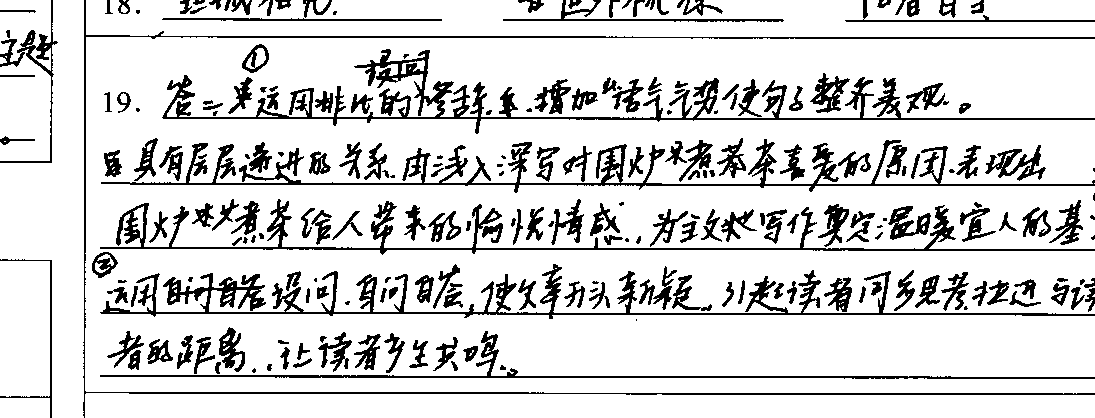 18.
主题
19. 答：①运用排比的修辞，增加语气气势使句子整齐美观。
具有层层递进的关系，由浅入深写对围炉煮茶喜爱的原因，表现出
围炉煮茶给人带来的愉悦情感，为主文的写作奠定温暖宜人的基
②运用设问，自问自答，使文章开头新颖，引起读者同步思考拉进与读
者的距离，让读者产生共鸣。